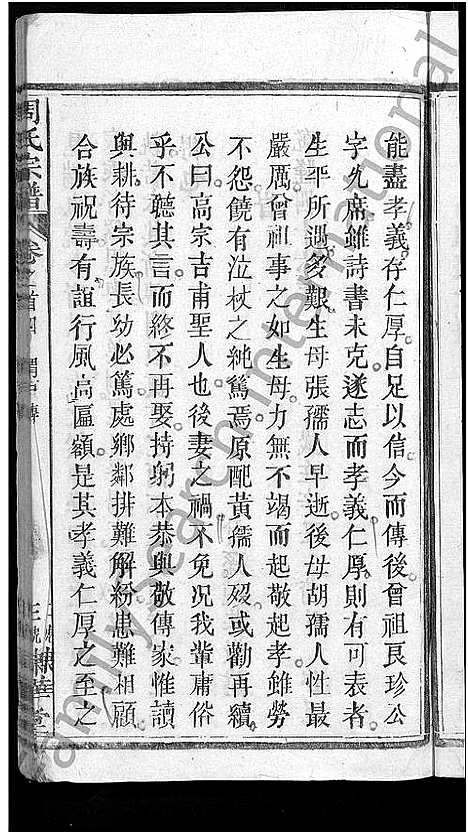 能盡孝義存仁厚自足以信今而傳後曾祖長珍公
字九席雖詩書未克遂志而孝義仁厚則有可表者
生平所遇多艱生母張孺人早逝後母胡孺人性最
嚴厲曾祖事之如生母力無不竭而起敬起孝雖勞
不怨饒有泣杖之純篤焉原配黃孺人歿或勸再續
公曰高宗吉甫聖人也後妻之禍不免况我輩庸俗
乎不聽其言而終不再娶持躬本恭與敬傳家惟讀
與耕待宗族長幼必篤處鄉鄰排難解紛患難相顧
合族祝壽有誼行風高匾額是其孝義仁厚之至之
周氏宗譜
卷之首四
Family Search International